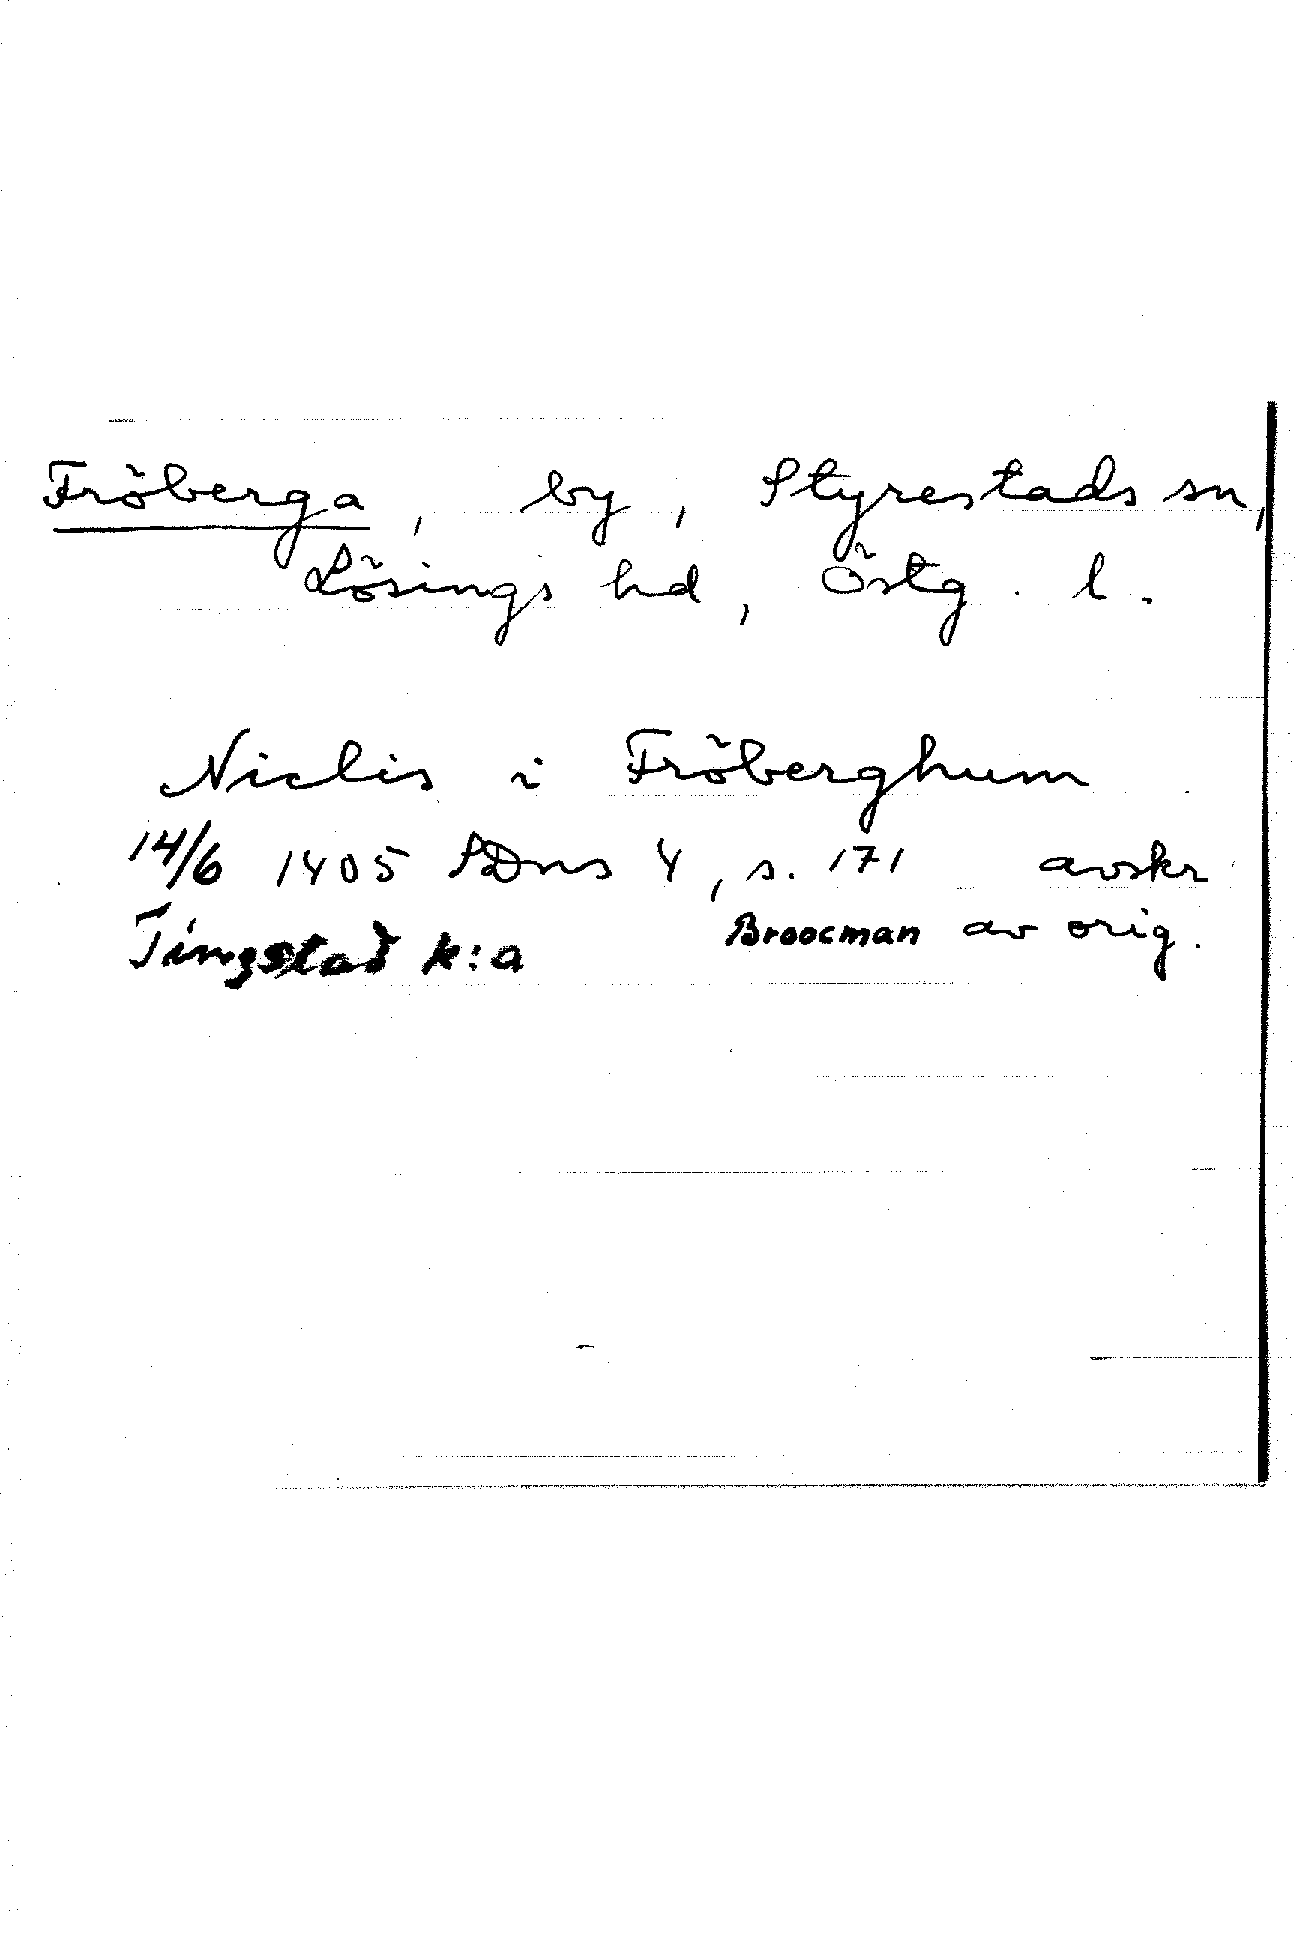 Fröberga, by, Styrestads sn,
Lösings hd, Östg. l.
Niclis i Fröberghum
14/6 1405 SDns 4, s. 171 avskr
Tingstad k:a Broocman av orig.